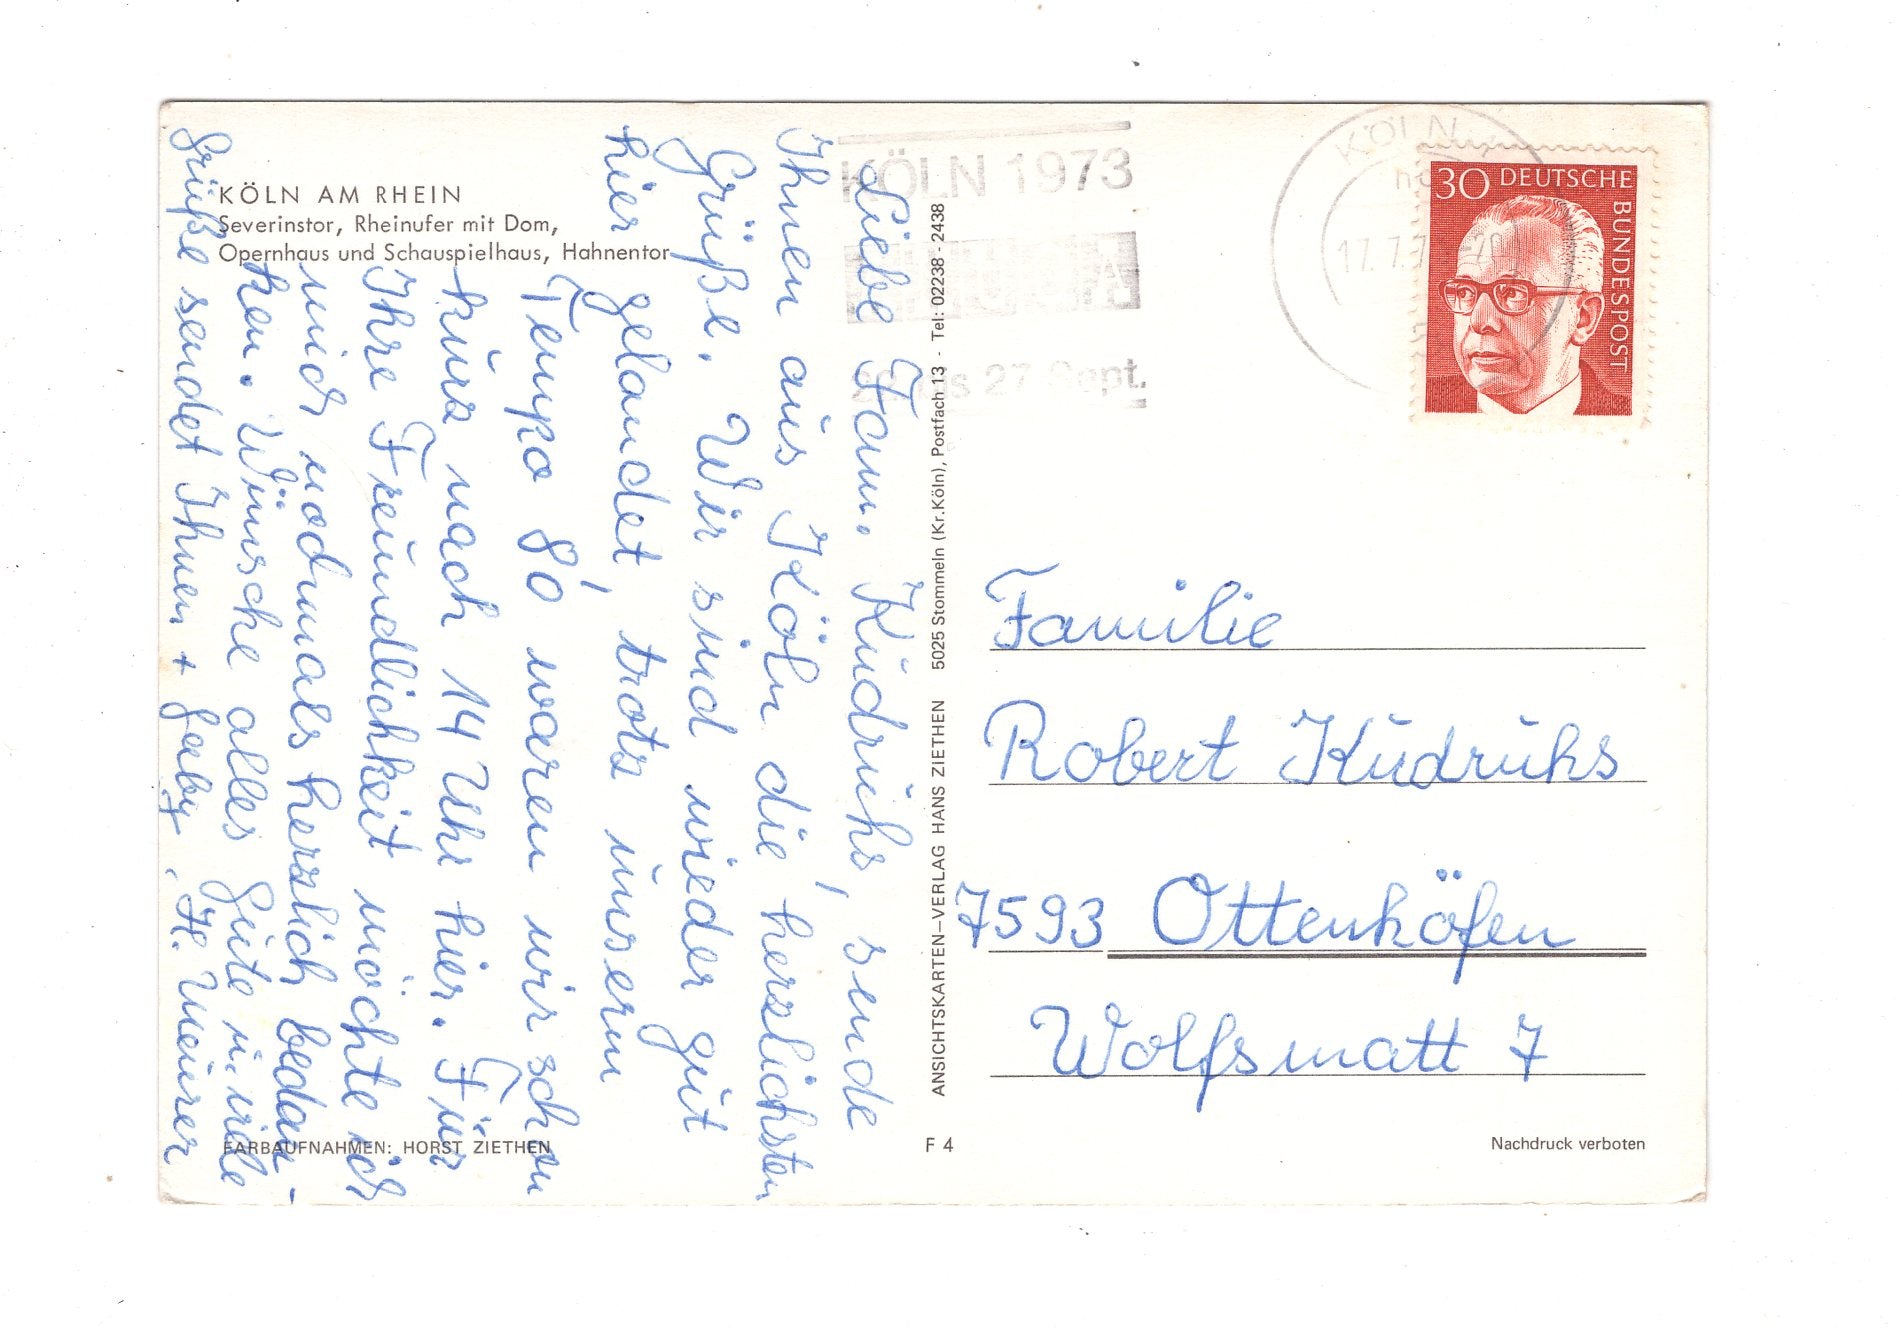 KÖLN AM RHEIN
Severinstor, Rheinufer mit Dom,
Opernhaus und Schauspielhaus, Hahnentor
Liebe Fam. Kudruhs, sende
Ihnen aus Köln die herzlichsten
Grüße. Wir sind wieder gut
hier gelandet, trotz unserm
Tempo 80 waren wir schon
kurz nach 14 Uhr hier. Für
Ihre Freundlichkeit möchte ich
mich nochmals herzlich bedan-
ken. Wünsche alles Gute u. viele
Grüße sendet Ihnen + Gaby. H. Meurer
FARBAUFNAHMEN: HORST ZIETHEN
ANSICHTSKARTEN-VERLAG HANS ZIETHEN 5025 Stommeln (Kr. Köln), Postfach 13 - Tel: 02238 - 2438
F 4
KÖLN 1973
bis 27. Sept.
KÖLN
17.7.7
30 DEUTSCHE
BUNDESPOST
Familie
Robert Kudruhs
7593 Ottenhöfen
Wolfsmatt 7
Nachdruck verboten